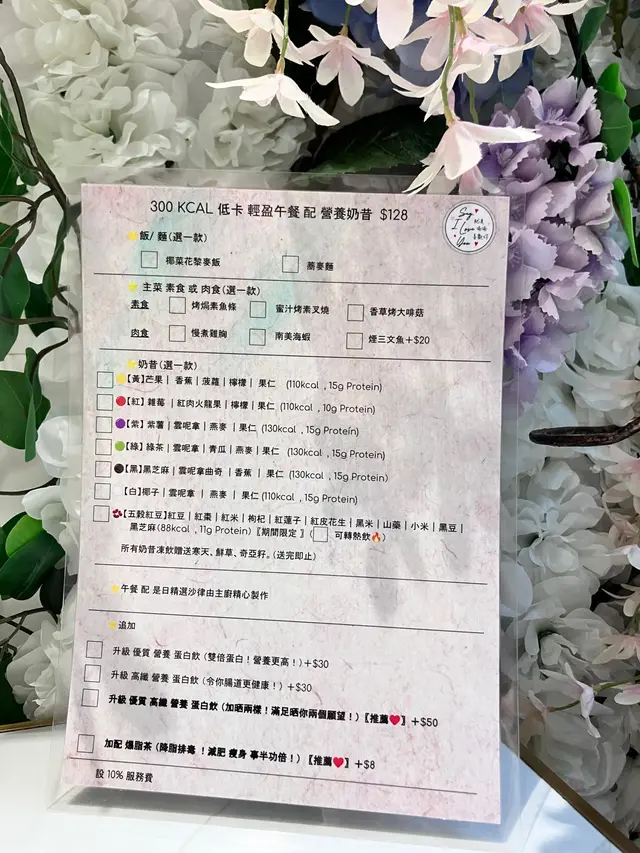 300 KCAL 低卡 輕盈午餐 配 營養奶昔 $128
Say I Love You
⭐飯/ 麵(選一款)
椰菜花藜麥飯
蕎麥麵
⭐主菜 素食 或 肉食(選一款)
素食 烤焗素魚條 蜜汁烤素叉燒 香草烤大啡菇
肉食 慢煮雞胸 南美海蝦 煙三文魚+$20
⭐奶昔(選一款)
🟡【黃】芒果| 香蕉 | 菠蘿 | 檸檬 | 果仁 (110kcal , 15g Protein)
🔴【紅】雜莓 | 紅肉火龍果 | 檸檬 | 果仁 (110kcal , 10g Protein)
🟣【紫】紫薯 | 雲呢拿 | 燕麥 | 果仁 (130kcal , 15g Protein)
🟢【綠】綠茶 | 雲呢拿 | 青瓜 | 燕麥 | 果仁 (130kcal , 15g Protein)
⚫【黑】黑芝麻 | 雲呢拿曲奇 | 香蕉 | 果仁 (130kcal , 15g Protein)
【白】椰子 | 雲呢拿 | 燕麥 | 果仁 (110kcal , 15g Protein)
【五穀紅豆】紅豆 | 紅棗 | 紅米 | 枸杞 | 紅蓮子 | 紅皮花生 | 黑米 | 山藥 | 小米 | 黑豆 |
黑芝麻(88kcal , 11g Protein)〖期間限定 〗( 可轉熱飲🔥)
所有奶昔凍飲贈送寒天、鮮草、奇亞籽。(送完即止)
⭐午餐 配 是日精選沙律由主廚精心製作
⭐追加
升級 優質 營養 蛋白飲 (雙倍蛋白！營養更高！)+$30
升級 高纖 營養 蛋白飲 (令你腸道更健康！)+$30
升級 優質 高纖 營養 蛋白飲 (加晒兩樣！滿足晒你兩個願望！)〖推薦❤️〗+$50
加配 爆脂茶 (降脂排毒 ！減肥 瘦身 事半功倍！)〖推薦❤️〗+$8
設 10% 服務費